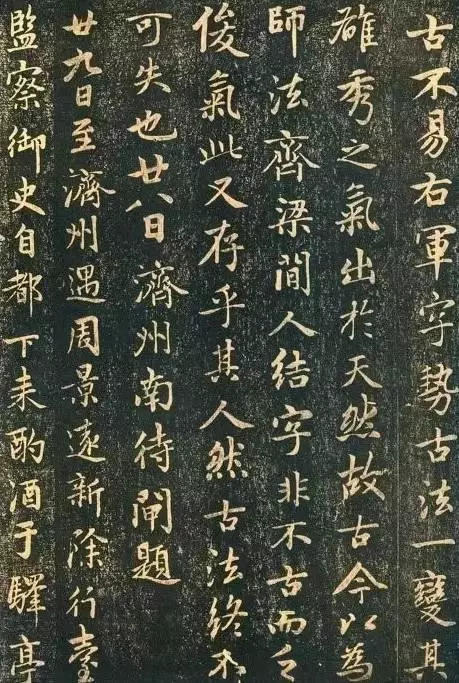 古不易右軍字勢古法一變其
雄秀之氣出於天然故古今以為
師法齊梁間人結字非不古而乏
俊氣此又存乎其人然古法終不
可失也廿八日濟州南待閘題
廿九日至濟州遇周景遠新除行臺
監察御史自都下来酌酒于驛亭